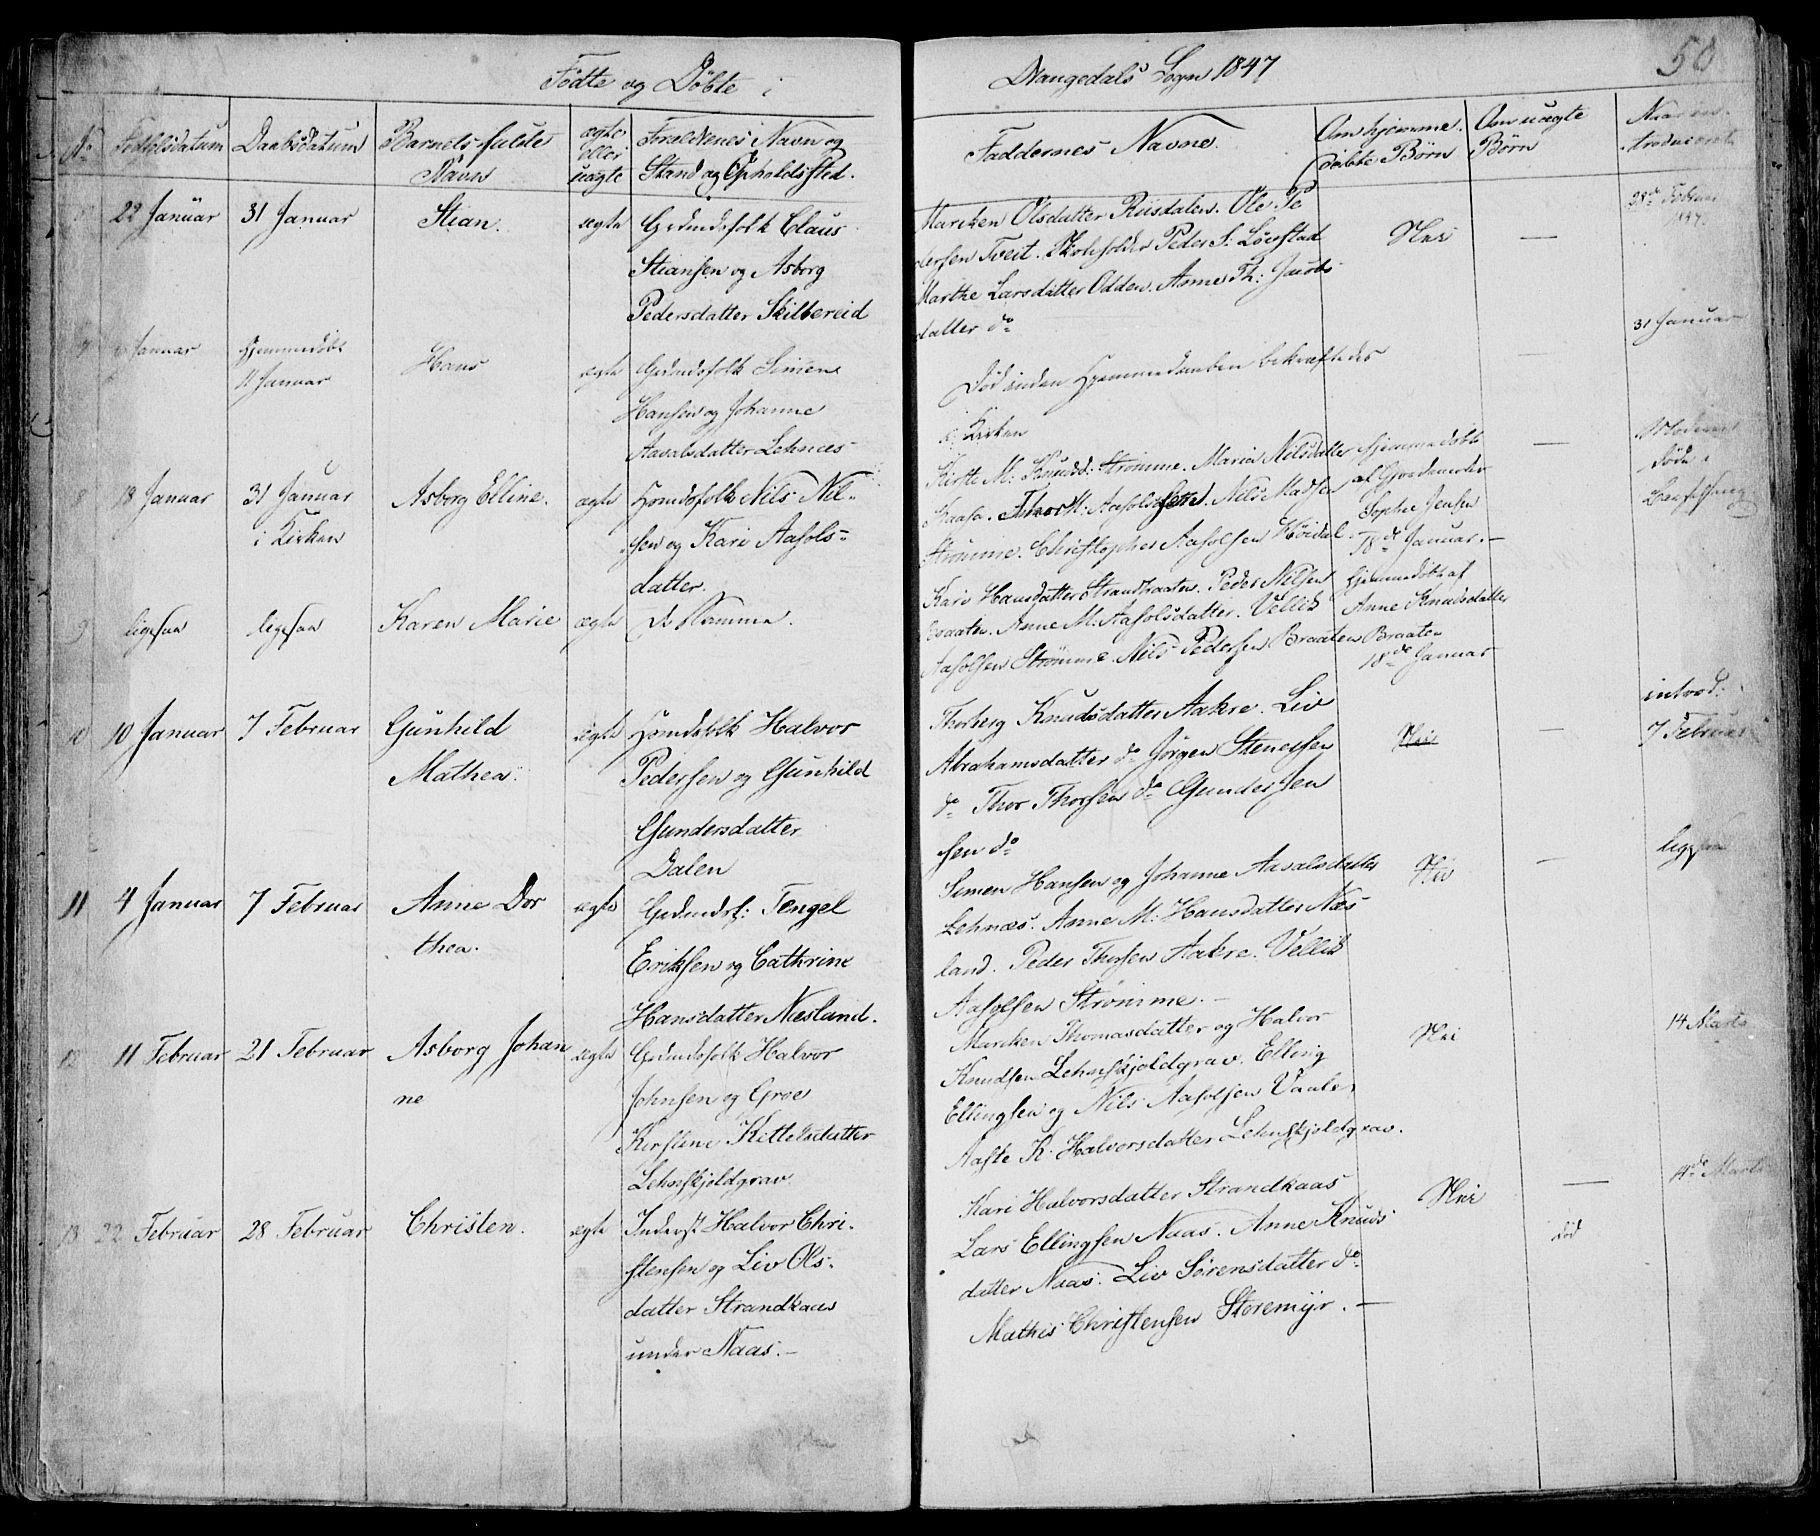 Fødte og Døbte i
Drangedals Sogn 1847
50
No
Fødselsdatum
Daabsdatum
Barnets fulde
Navn
ægte
eller
uægte
Forældrenes Navn og
Stand og Opholdssted.
Faddernes Navne.
Om hjemme
døbte Børn
Om uægte
Børn
Naar in-
troduceret
22 Januar
31 Januar
Stian.
ægte
Grdmdsfolk Claus
Stiansen og Asborg
Pedersdatter Skilbereid
Mariken Olsdatter Riisdalen. Ole Pe
dersen Tveit. Skoleholder Peder S. Löverstad
Marthe Larsdatter Odden. Anne Th: Jacobs
datter do
Nei
—
28de Februar
1847.
Januar
Hjemmedøbt
11 Januar
Hans
ægte
Grdmdsfolk Simen
Hansen og Johanne
Aavalsdatter Lehnæs
Død inden Hjemmedaaben bekræftedes
i Kirken
—
31 Januar
8
18 Januar
31 Januar
i Kirken
Asborg Elline.
ægte
Hsmdsfolk Nils Nil-
sen og Kari Aasols-
datter.
Kirste M: Knudsd: Strømme. Maria Nilsdatter
Kaasa. Thor M: Aasols Nils Madsen
Strømme. Christopher Aasolsen Høidal
Hjemmedøbt
af Gjordemoder
Sophie Jensen
18de Januar. —
—
Moderen
døde i
Barselseng
9
ligesaa
ligesaa
Karen Marie
ægte
De Samme.
Kari Hansdatter Strandbraaten. Peder Nilsen
Braaten. Anne M: Aasolsdatter. Vellik
Aasolsen Strømme. Nils Pedersen Braaten
Hjemmedøbt af
Anne Knudsdatter
Braaten
18de Januar
10
10 Januar
7 Februar
Gunhild
Mathea.
ægte
Hsmdsfolk Halvor
Pedersen og Gunhild
Gundersdatter
Dalen
Thorberg Knudsdatter Aakre. Liv
Abrahamsdatter do Jørgen Stenersen
do Thor Thorsen do Gunder
sen do
Nei
—
introd:
7 Februar
11
4 Januar
7 Februar
Anne Dor
thea.
ægte
Grdmdsf: Tengel
Eriksen og Cathrine
Hansdatter Næsland.
Simen Hansen og Johanne Aavalsdatter
Lehnæs. Anne M: Hansdatter Næs
land. Peder Thorsen Aakre. Vellik
Aasolsen Strømme. —
Nei
—
ligesaa
12
11 Februar
21 Februar
Asborg Johan
ne
ægte
Grdmdsfolk Halvor
Johnsen og Groe
Kirstine Kittelsdatter
Lehnskjoldgrav
Mariken Thomasdatter og Halvor
Knudsen Lehnskjoldgrav. Elling
Ellingsen og Nils Aasolsen Vaale,
Aaste K. Halvorsdatter Lehnskjoldgrav.
Nei
14 Marts
13
22 Februar
28 Februar
Christen.
ægte
Inderst Halvor Chri-
stensen og Liv Ols-
datter Strandkaas
under Naas. —
Kari Halvorsdatter Strandkaas
Lars Ellingsen Naas. Anne Knuds
datter Naas. Liv Sørensdatter do
Mathis Christensen Storemyr. —
Nei
—
død
14de Marts